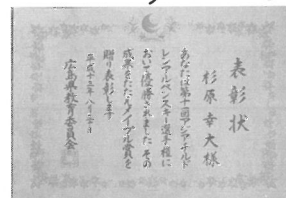 表彰状
杉原幸大様
あなたは第十一回アジアチルド
レンアルペンスキー選手権に
おいて優勝されました その
成果をたたえメイプル賞を
贈り表彰します
平成十三年八月二十日
広島県教育委員会